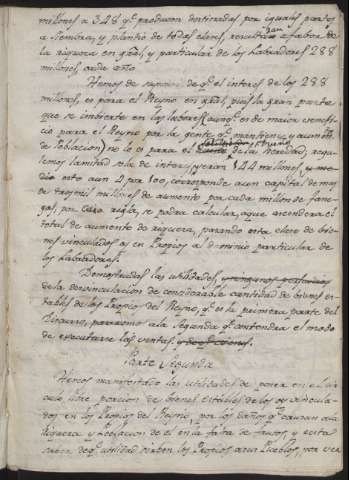 millones a 348 q.e producen destinadas por iguales partes
a siembra, y plantio de todas clases, resultarán a favor de
la riqueza en gral, y particular de los Labradores 288
millones, cada año.
Hemos de suponer de q.e el interes de los 288
millones, es para el Reyno en gral, pues la gran parte
que se imbierte en las labores aung.e es de maior benefi-
cio para el Reyno por la gente q.e mantiene y aumento
de Poblacion) no lo es para el de la heredad, regu-
lemos la mitad sola de interes, y seran 144 millones, y
esto a un 4 por 100, corresponde a un capital de mas
de tresmil millones de aumento por cada millon de fane-
gas, por cuia regla, se podra calcular, a que ascendera el
total de aumento de riqueza, pasando esta clase de bie-
nes vinculados en Propios al dominio particular de
los Labradores.
Demostradas las utilidades,
de la desvinculacion de considerable cantidad de bienes es-
tables de los Propios del Reyno, q.e es la primera parte del
Discurso, pasaremos a la Segunda q.e contendra el modo
de executarse las ventas,
Parte Segunda
Hemos manifestado las utilidades de poner en el cir-
culo libre porcion de bienes estables de los vincula-
dos en los Propios del Reyno, por los daños q.e causan a la
riqueza y Poblacion de el en la falta de frutos, y esta
q.e utilidad dexen los Propios a sus Pueblos, por ver